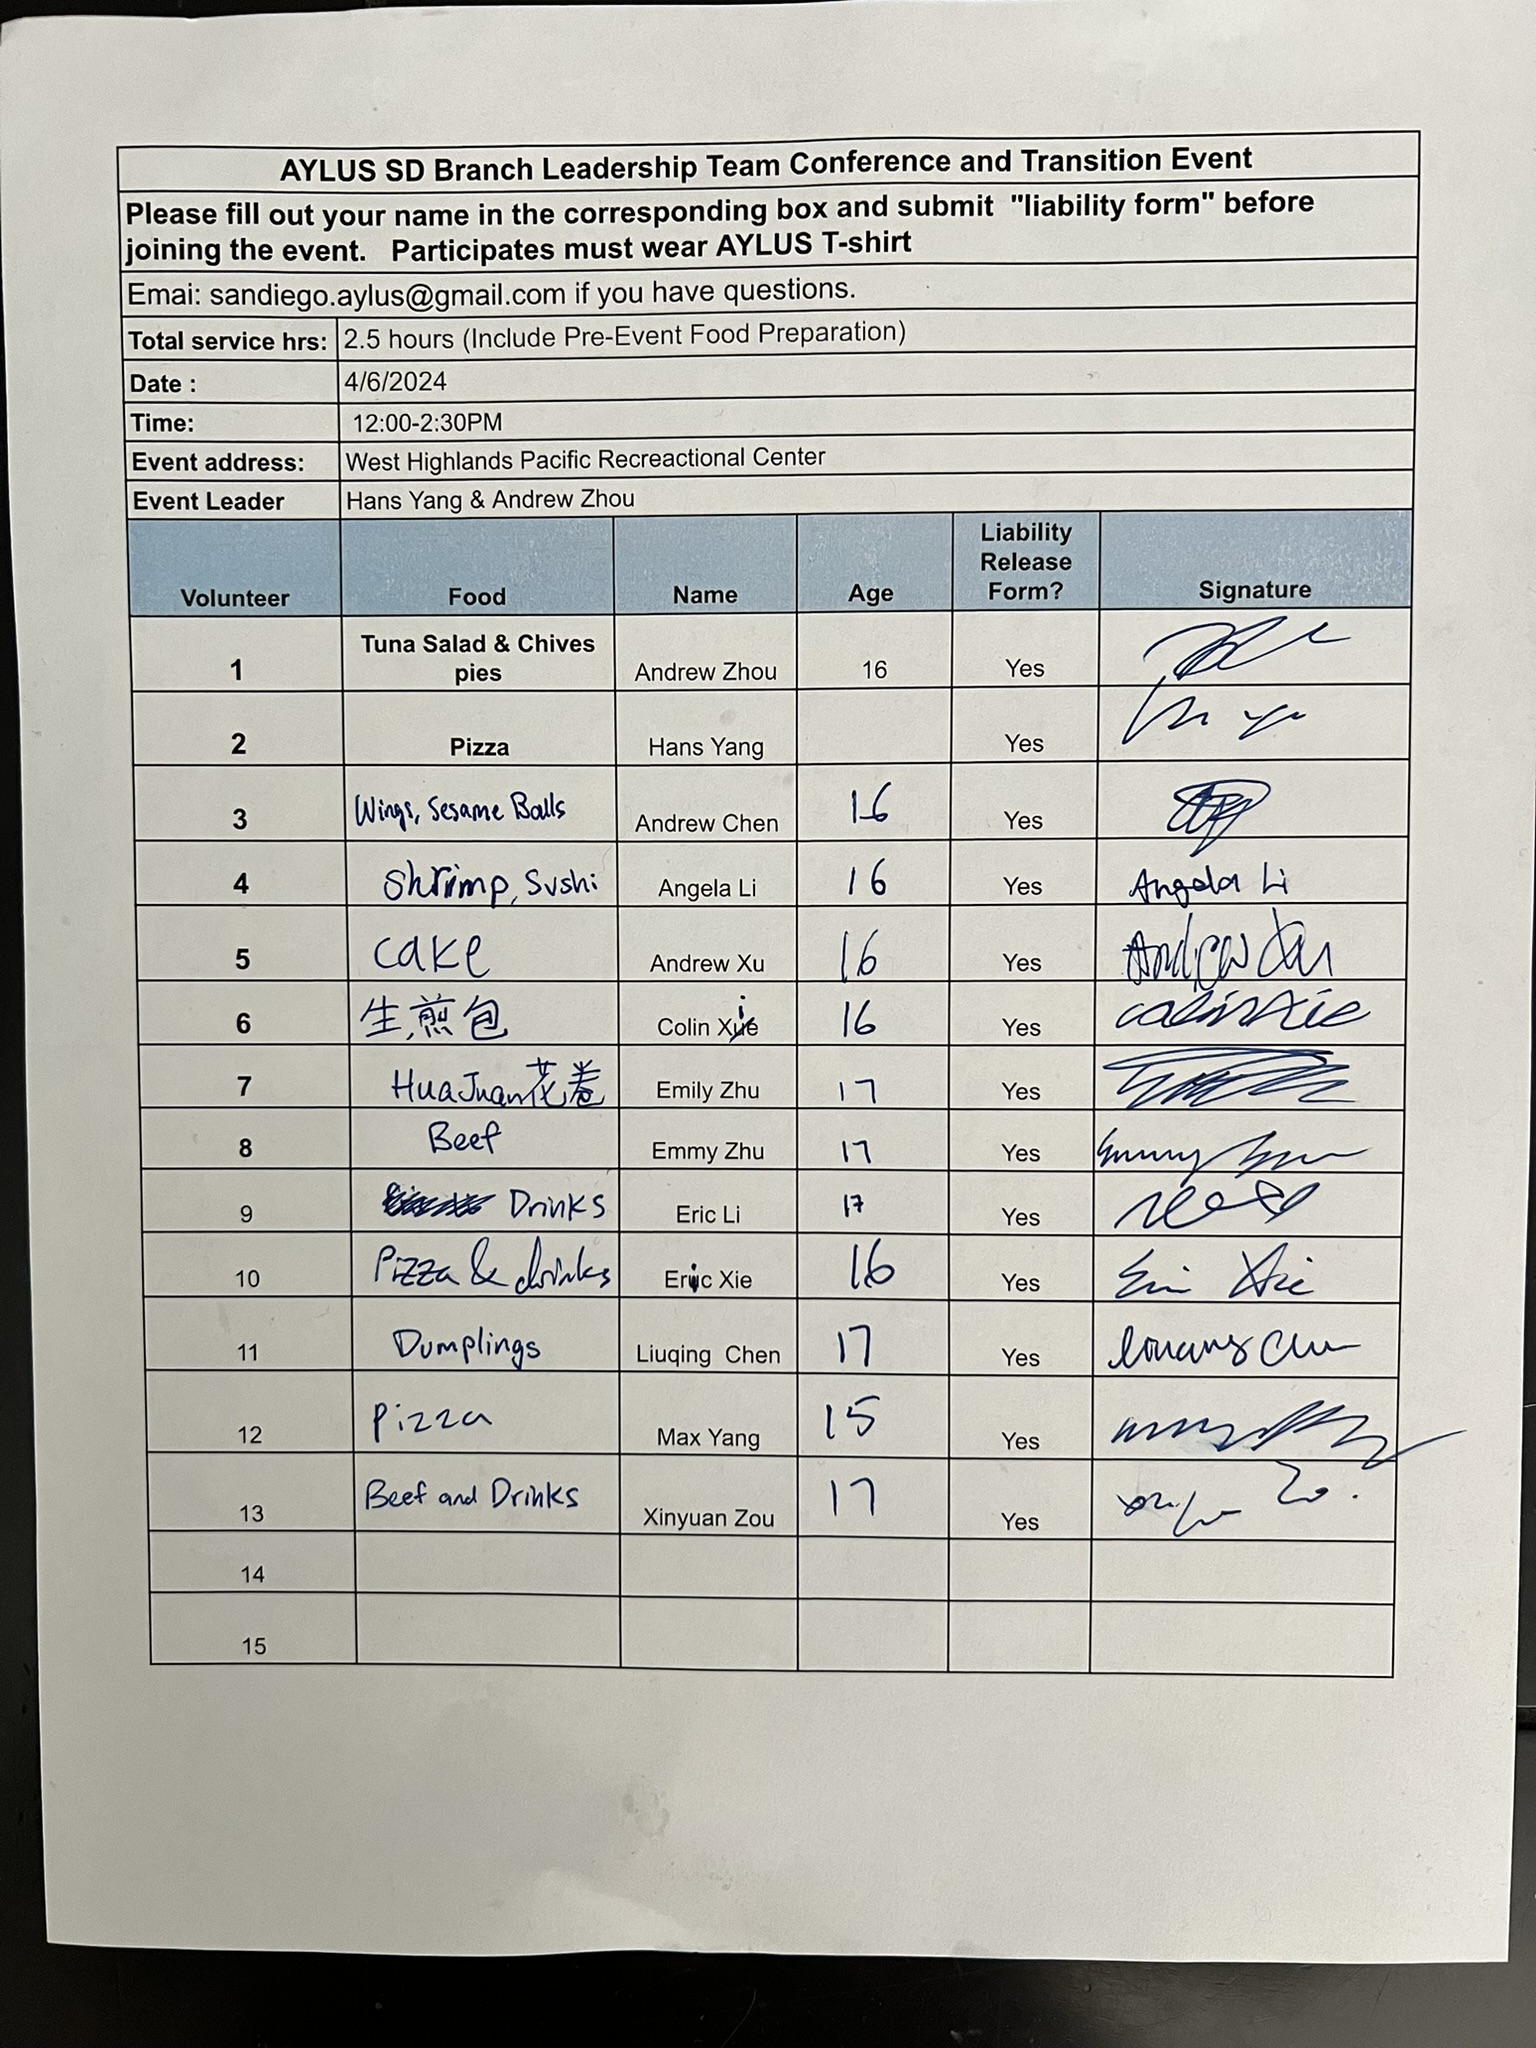 AYLUS SD Branch Leadership Team Conference and Transition Event
Please fill out your name in the corresponding box and submit "liability form" before
joining the event. Participates must wear AYLUS T-shirt
Emai: sandiego.aylus@gmail.com if you have questions.
Total service hrs: 2.5 hours (Include Pre-Event Food Preparation)
Date : 4/6/2024
Time: 12:00-2:30PM
Event address: West Highlands Pacific Recreactional Center
Event Leader Hans Yang & Andrew Zhou
Volunteer Food Name Age Liability Release Form? Signature
1 Tuna Salad & Chives pies Andrew Zhou 16 Yes
2 Pizza Hans Yang Yes
3 Wings, Sesame Balls Andrew Chen 16 Yes
4 Shrimp, Sushi Angela Li 16 Yes Angela Li
5 cake Andrew Xu 16 Yes Andrew Xu
6 生煎包 Colin Xie 16 Yes Colin Xie
7 HuaJuan花卷 Emily Zhu 17 Yes
8 Beef Emmy Zhu 17 Yes
9 Drinks Eric Li 17 Yes
10 Pizza & drinks Eric Xie 16 Yes Eric Xie
11 Dumplings Liuqing Chen 17 Yes
12 Pizza Max Yang 15 Yes
13 Beef and Drinks Xinyuan Zou 17 Yes
14
15